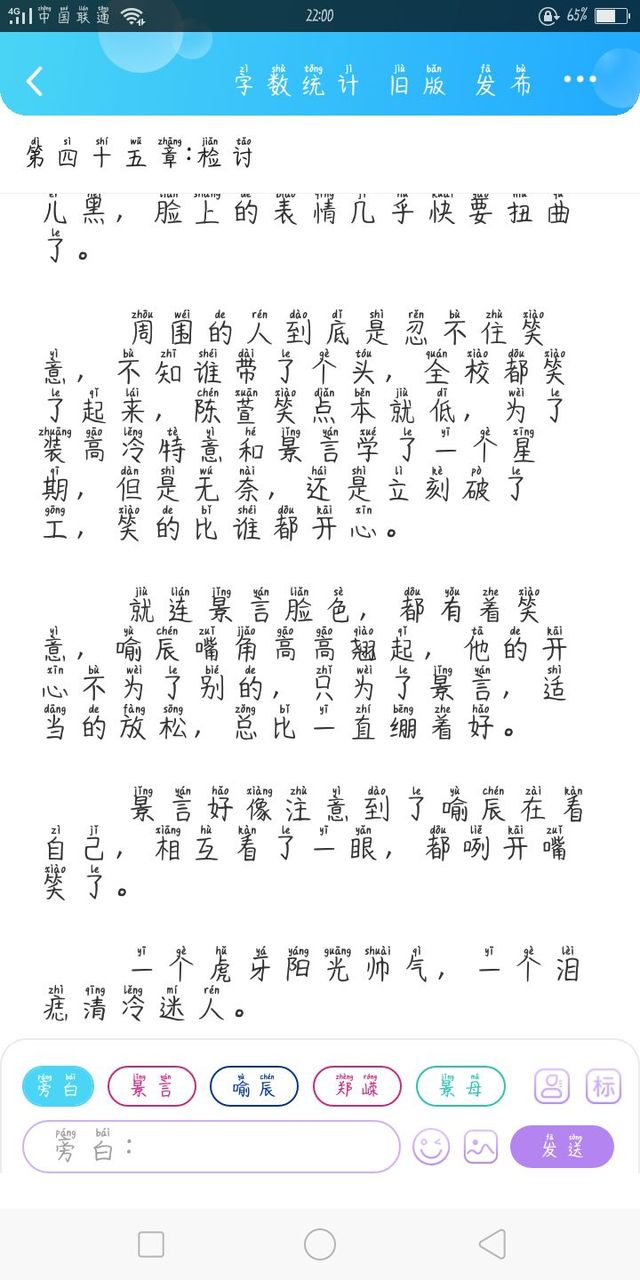 4G 中国联通 22:00 65%
字数统计 旧版 发布
第四十五章:检讨
儿黑，脸上的表情几乎快要扭曲
了。
周围的人到底是忍不住笑
意，不知谁带了个头，全校都笑
了起来，陈萱笑点本就低，为了
装高冷特意和景言学了一个星
期，但是无奈，还是立刻破了
工，笑的比谁都开心。
就连景言脸色，都有着笑
意，喻辰嘴角高高翘起，他的开
心不为了别的，只为了景言，适
当的放松，总比一直绷着好。
景言好像注意到了喻辰在看
自己，相互看了一眼，都咧开嘴
笑了。
一个虎牙阳光帅气，一个泪
痣清冷迷人。
旁白 景言 喻辰 郑嵘 景母 标
旁白： 发送